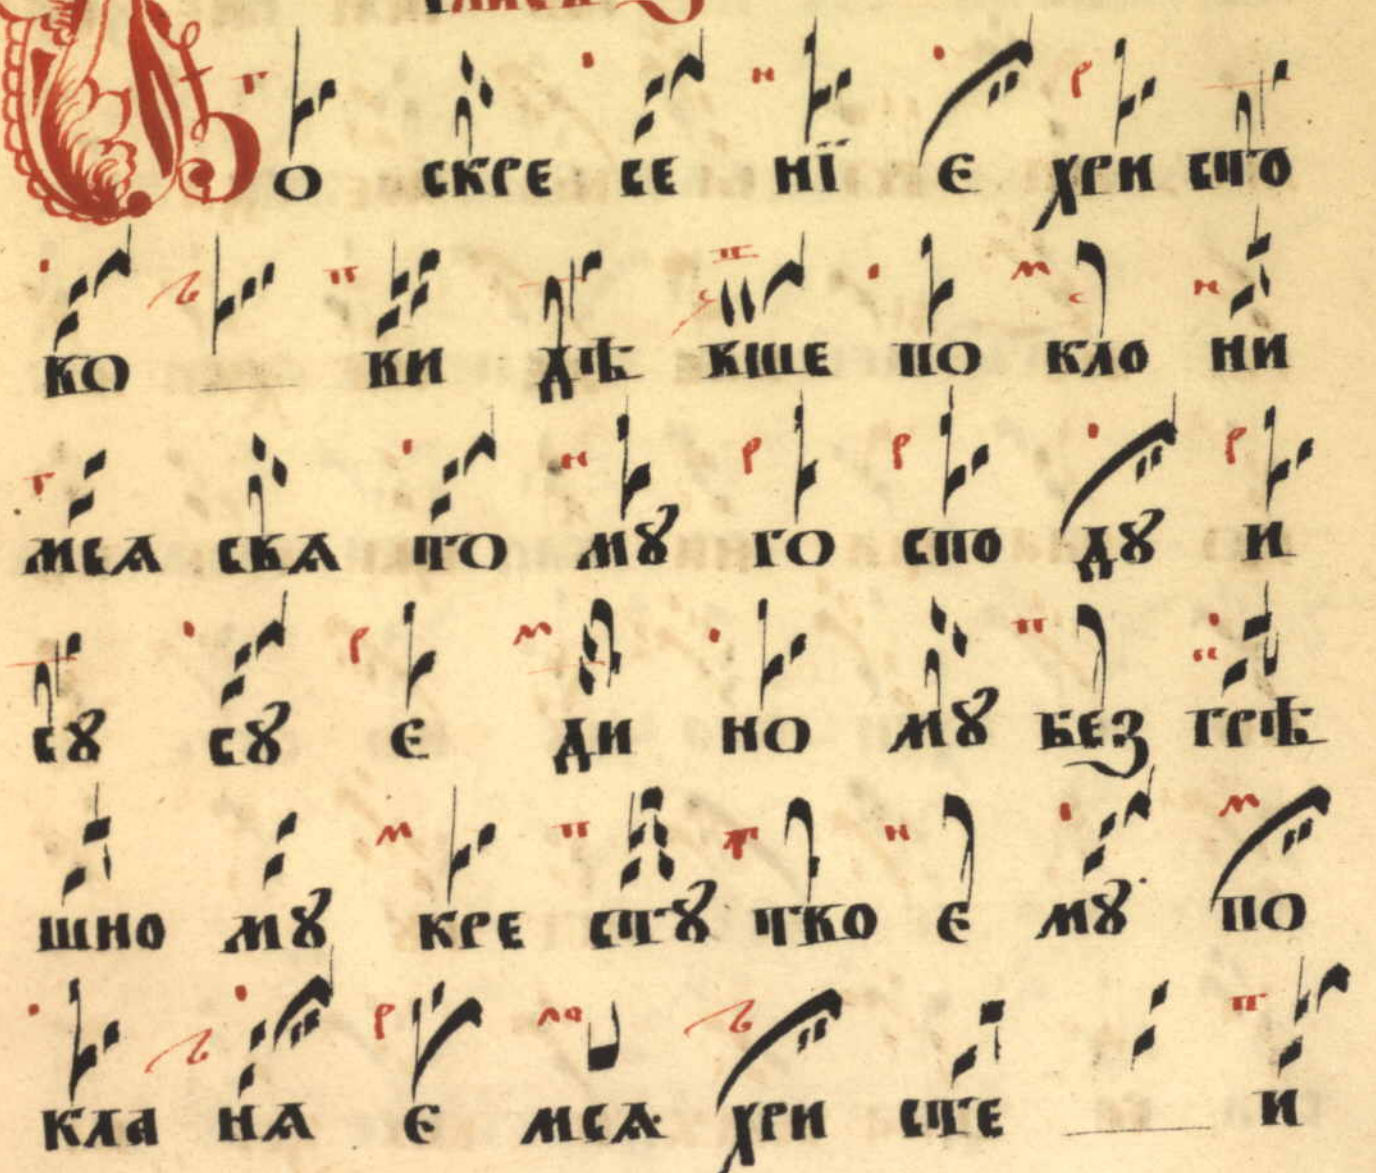 Во скре се нї є хри сто
ко ки дѣ вше по кло ни
мсѧ свѧ то мꙋ го спо дꙋ и
сꙋ сꙋ є ди но мꙋ без грѣ
шно мꙋ кре стꙋ тво є мꙋ по
кла нѧ є мсѧ хри сте и